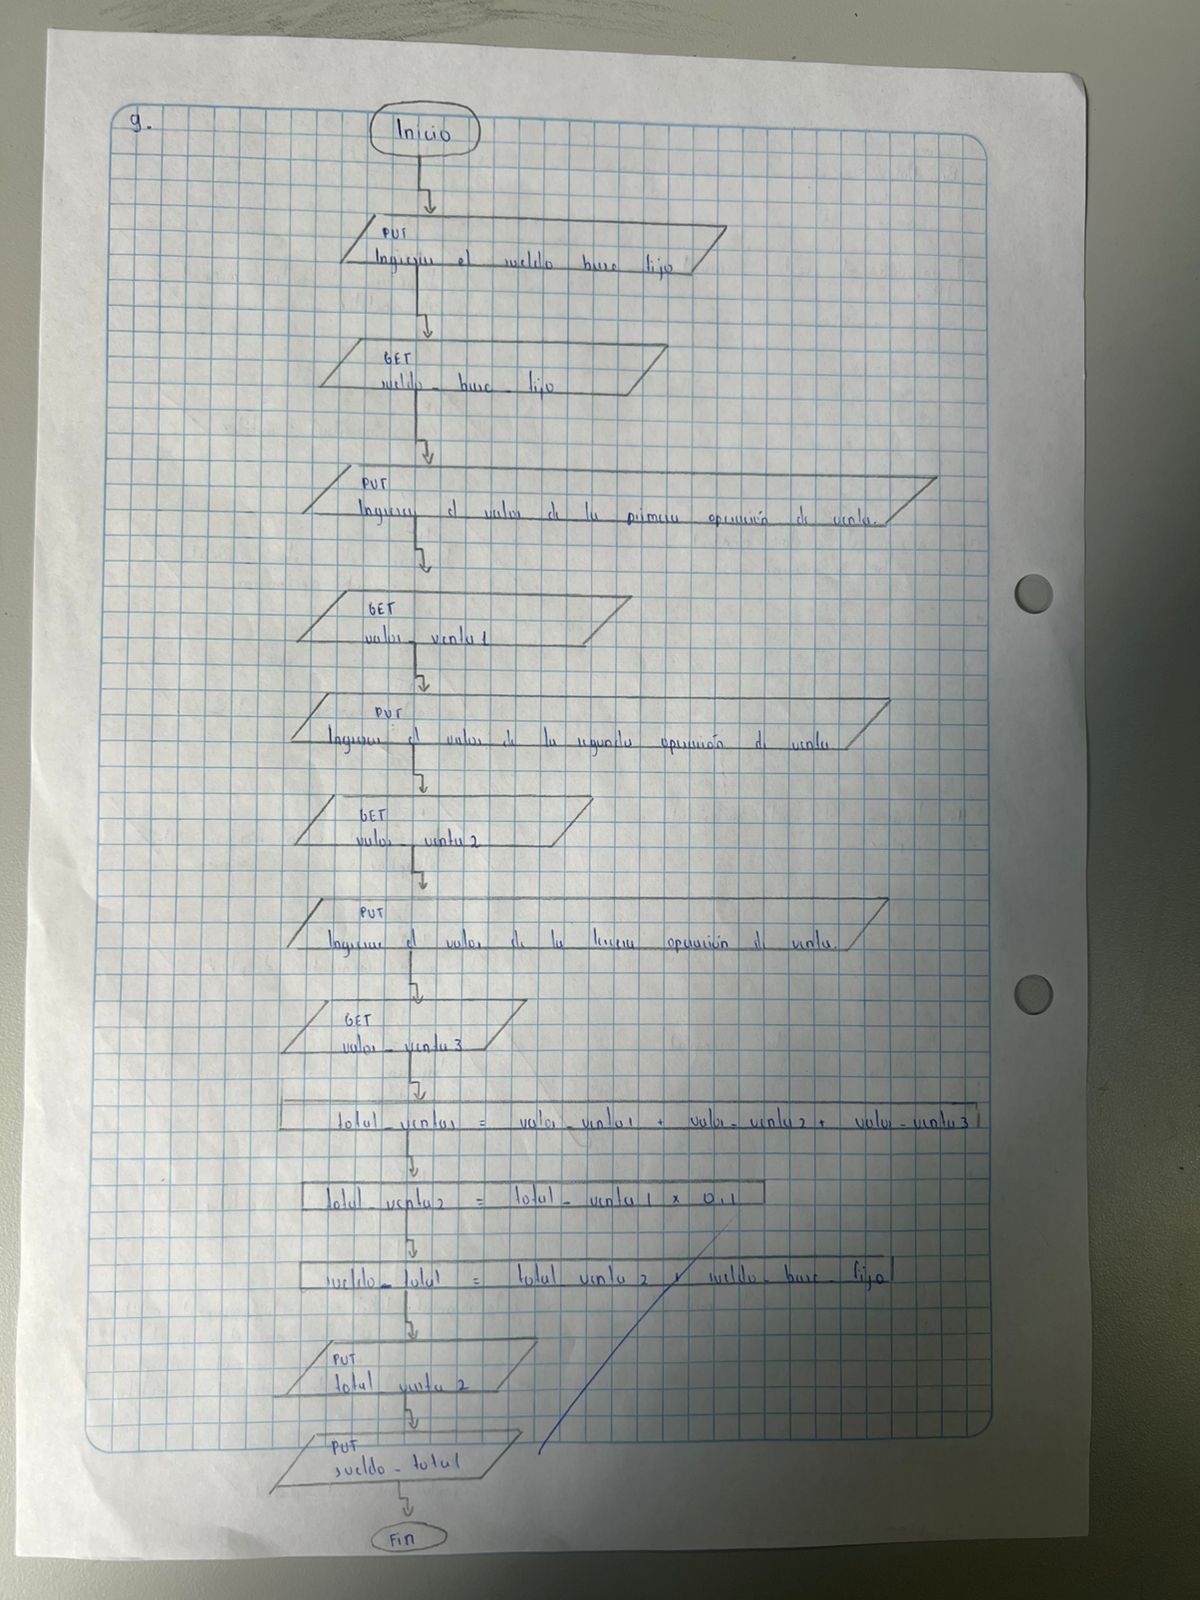 9.
Inicio
PUT
Ingrese el sueldo base fijo
GET
sueldo_base_fijo
PUT
Ingrese el valor de la primera operación de venta.
GET
valor_venta1
PUT
Ingrese el valor de la segunda operación de venta
GET
valor_venta2
PUT
Ingrese el valor de la tercera operación de venta.
GET
valor_venta3
total_venta1 = valor_venta1 + valor_venta2 + valor_venta3
total_venta2 = total_venta1 x 0.1
sueldo_total = total venta2 + sueldo_base_fijo
PUT
total venta2
PUT
sueldo_total
Fin